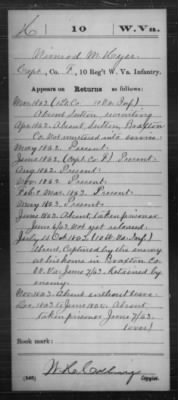 H 10 W.Va.
Nimrod M. Hyer
Capt., Co. F, 10 Reg't W. Va. Infantry.
Appears on Returns as follows:
Mar. 1862 (1st Co. 10 Va Inf.)
Absent Sutton, recruiting
Apr. 1862. Absent, Sutton, Braxton
Co. not mustered into service
May 1862. Present.
June 1862. (Capt. Co. F) Present.
Aug 1862. Present
Nov 1862 Present
Feb. & Mar. 1863. Present.
May 1863. Present.
June 1863. Absent, taken prisoner
June 6/63 Not yet released
July to Oct 1863. (10 W. Va. Inf)
Absent Captured by the enemy
at his home in Braxton Co.
W. Va June 7/63. Retained by
enemy.
Nov. 1863. Absent without leave
Dec. 1863 to June 1864. Absent
taken prisoner June 7/63.
(over)
Book mark:
(546) Copyist.